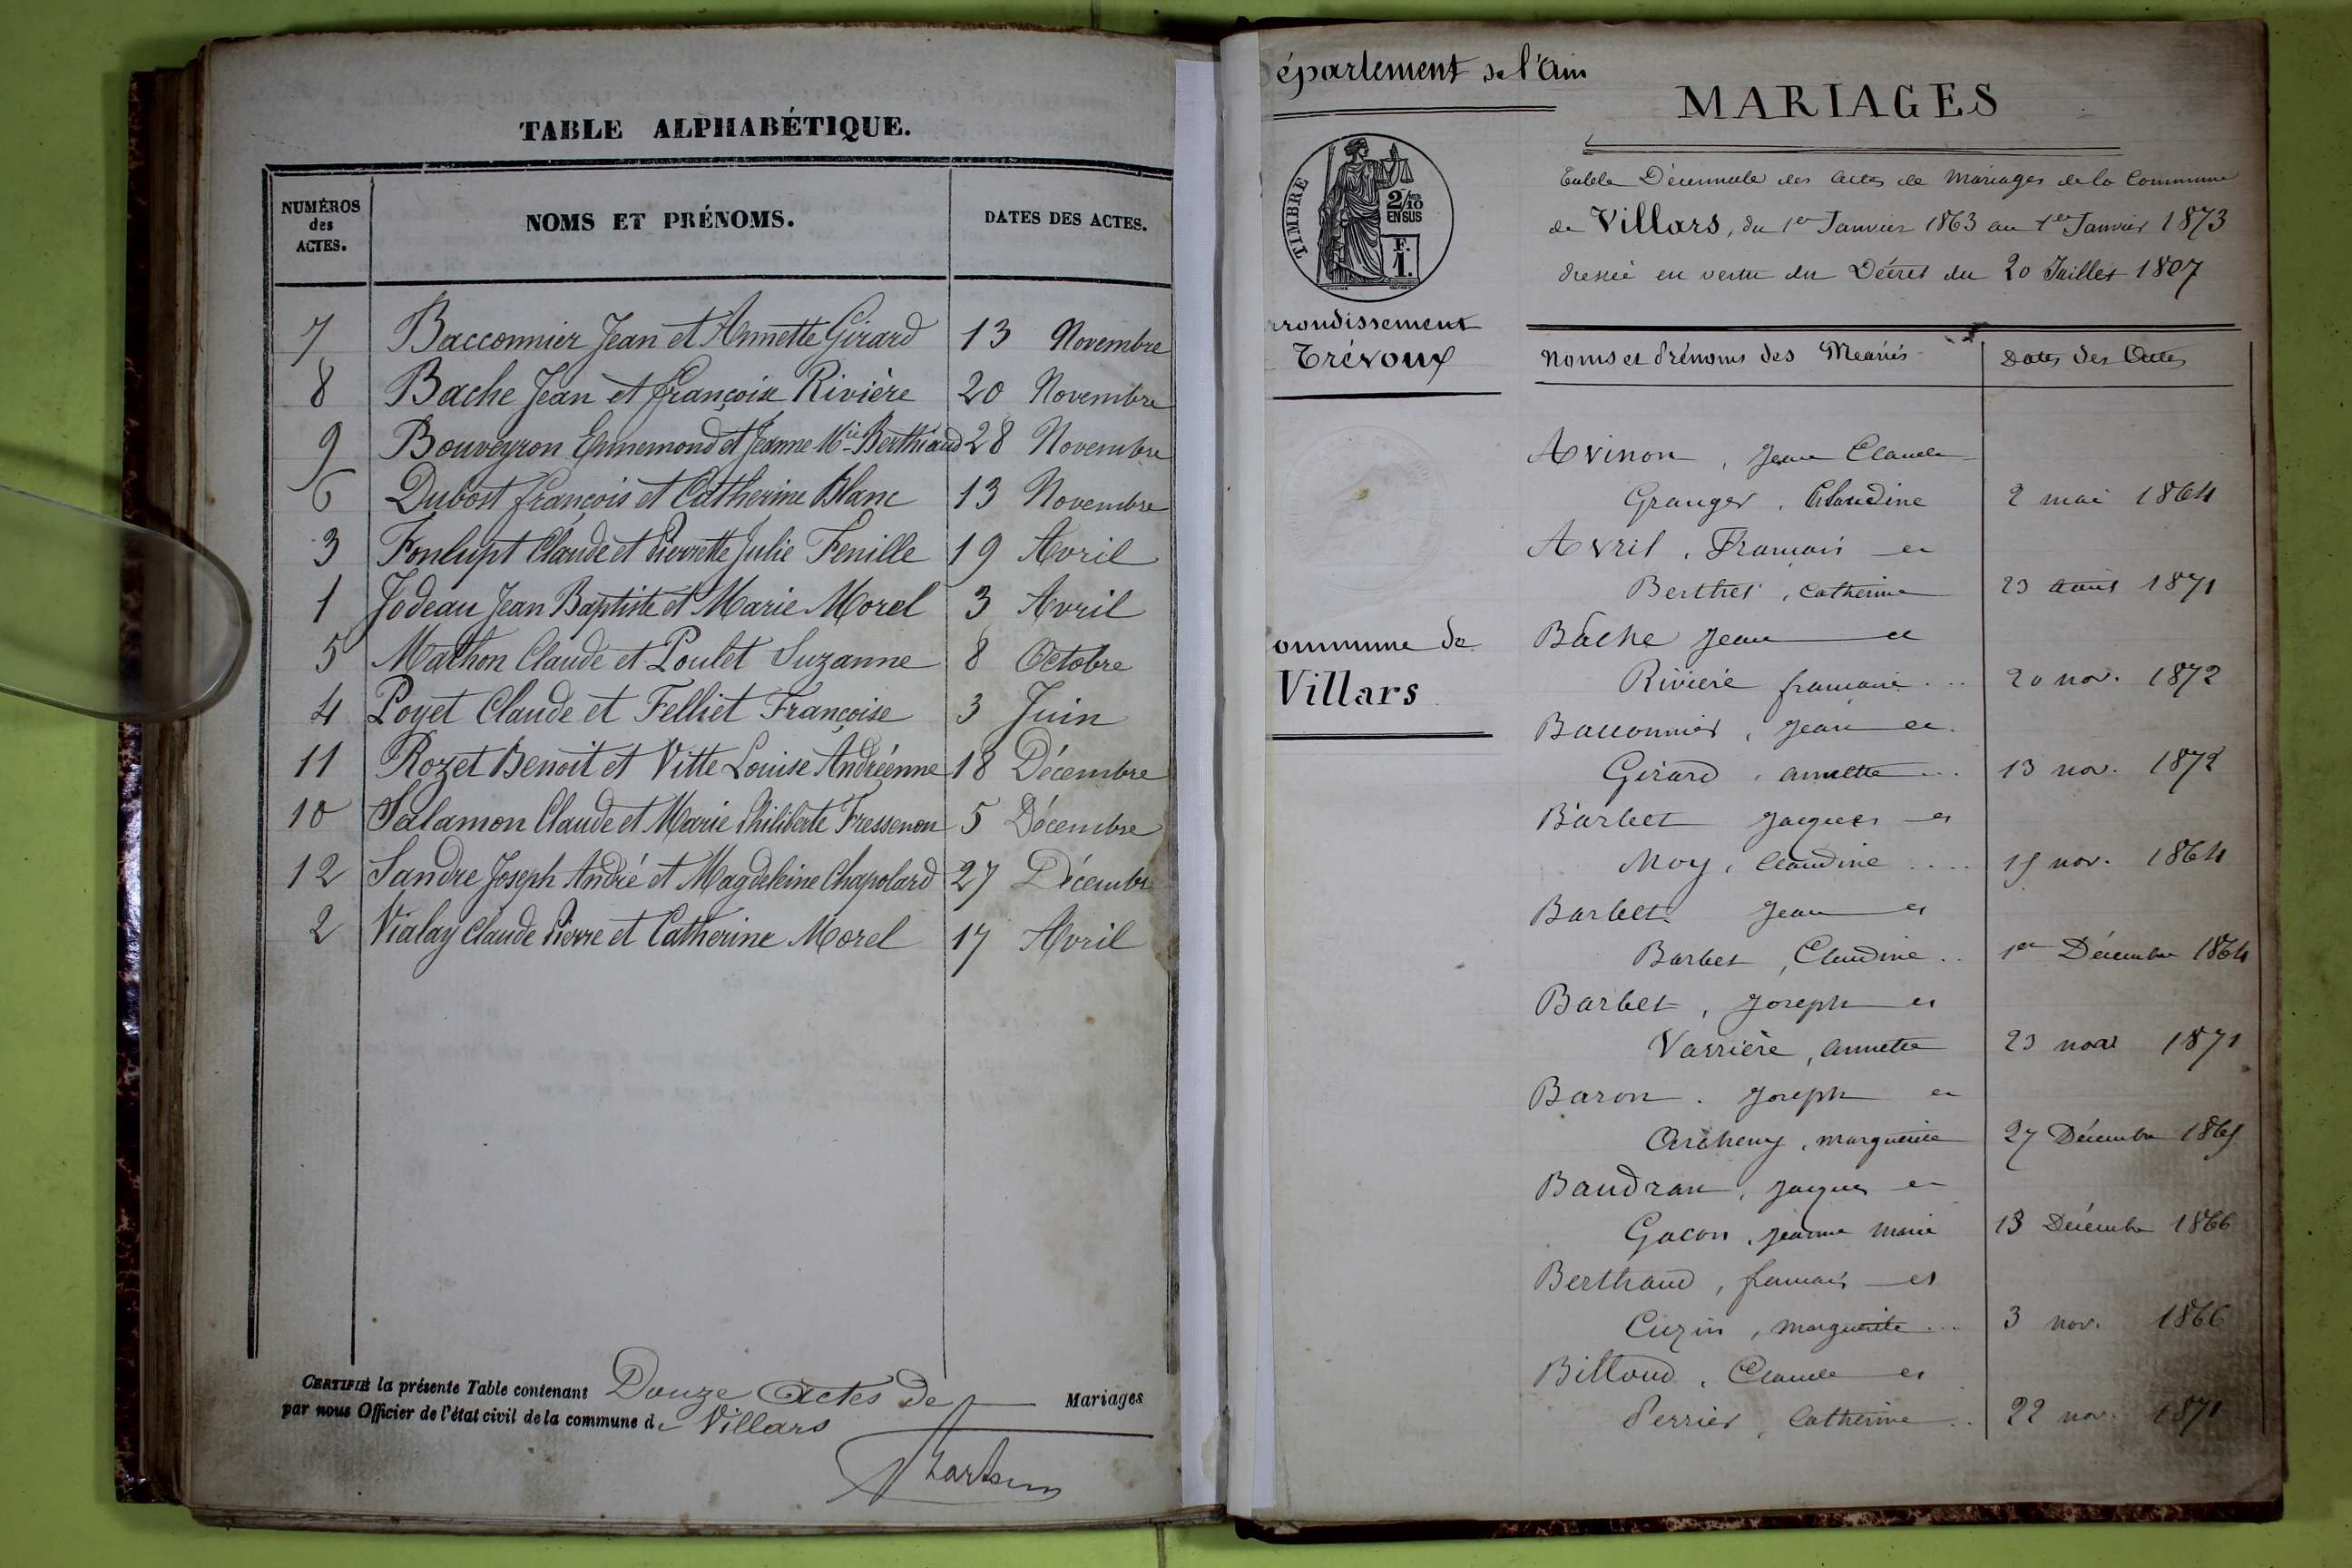 TABLE ALPHABÉTIQUE.
NUMÉROS des ACTES. NOMS ET PRÉNOMS. DATES DES ACTES.
7 Bacconnier Jean et Annette Girard 13 Novembre
8 Bache Jean et Françoise Rivière 20 Novembre
9 Bouveyron Ennemond et Jeanne Mie Berthiaud 28 Novembre
6 Dubost François et Catherine Blanc 13 Novembre
3 Fonlupt Claude et Pierrette Julie Fenille 19 Avril
1 Jodeau Jean Baptiste et Marie Morel 3 Avril
5 Mathon Claude et Poulet Suzanne 8 Octobre
4 Poyet Claude et Felliet Françoise 3 Juin
11 Rozet Benoit et Vitte Louise Andréenne 18 Décembre
10 Salamon Claude et Marie Philiberte Fressenon 5 Décembre
12 Sandre Joseph André et Magdeleine Chapolard 27 Décembre
2 Vialay Claude Pierre et Catherine Morel 17 Avril
CERTIFIÉ la présente Table contenant Douze Actes de Mariages
par nous Officier de l'état civil de la commune de Villars
épartement de l'Ain
TIMBRE
2/10 EN SUS
F. 1.
rrondissement
Trévoux
ommune de
Villars
MARIAGES
Table Décennale des actes de Mariages de la Commune
de Villars, du 1er Janvier 1863 au 1er Janvier 1873
dressée en vertu du Décret du 20 Juillet 1807
Noms et Prénoms des Mariés Dates des Actes
Avinon, Jean Claude
Granger, Claudine 2 mai 1864
Avril, François et
Berthet, Catherine 23 août 1871
Bâche Jean et
Rivière françoise ... 20 nov. 1872
Bacconnier, Jean et
Girard, annette ... 13 nov. 1872
Barbet Jacques et
Moy, Claudine .... 15 nov. 1864
Barbet Jean et
Barbet, Claudine .. 1er Décembre 1864
Barbet, Joseph et
Varrière, annette 23 nov 1871
Baron. Joseph et
Archeny, marguerite 27 Décembre 1865
Baudran, Jacques et
Gacon, Jeanne Marie 13 Décembre 1866
Berthaud, françois et
Cuzin, marguerite ... 3 nov. 1866
Billoud, Claude et
Perrier, Catherine .. 22 nov. 1871